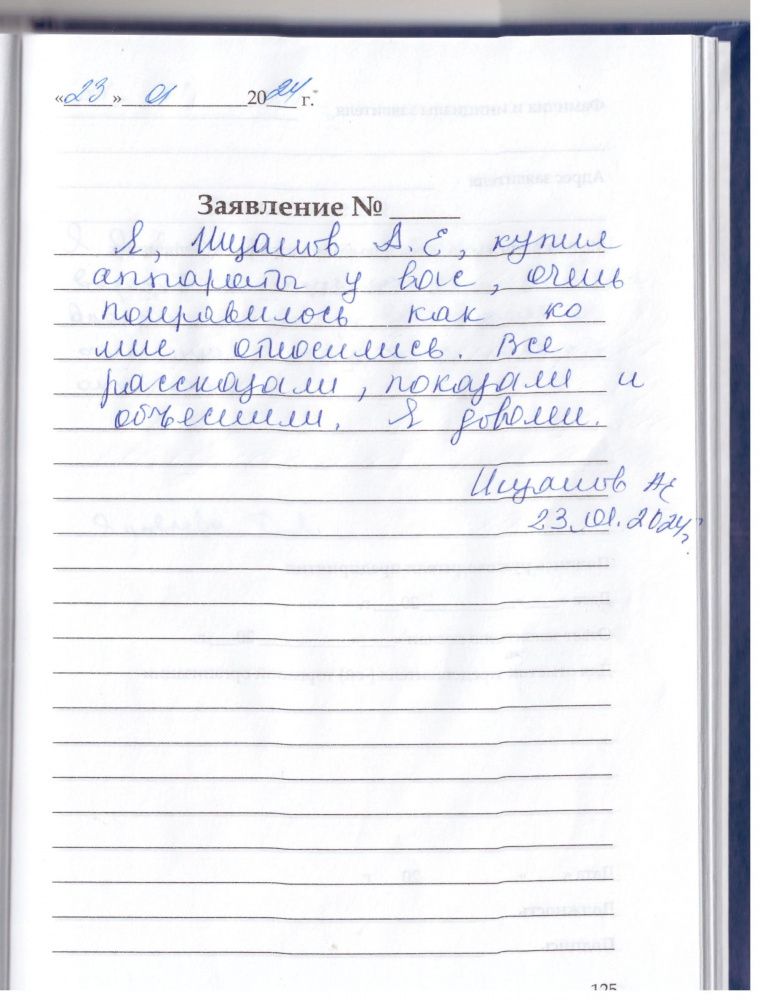 «23» 01 2024 г.
Заявление №
Я, Ищанов А.Е, купил
аппараты у вас, очень
понравилось как ко
мне относились. Все
рассказали, показали и
объяснили. Я доволен.
Ищанов АЕ
23.01.2024г.
125